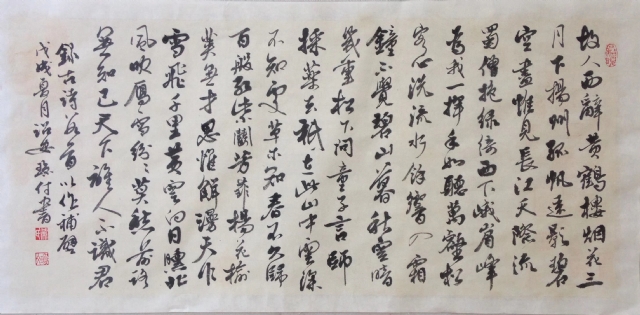 故人西辭黄鶴樓烟花三
月下揚州孤帆遠影碧
空盡惟見長江天際流
蜀僧抱綠綺西下峨眉峰
為我一揮手如聽萬壑松
客心洗流水餘響入霜
鐘不覺碧山暮秋雲暗
幾重松下問童子言師
採藥去祇在此山中雲深
不知處草木知春不久歸
百般紅紫鬭芳菲楊花榆
莢無才思惟解漫天作
雪飛千里黄雲白日曛北
風吹雁雪紛々莫愁前路
無知己天下誰人不識君
錄古詩五首以作補壁
戊戌夏月書